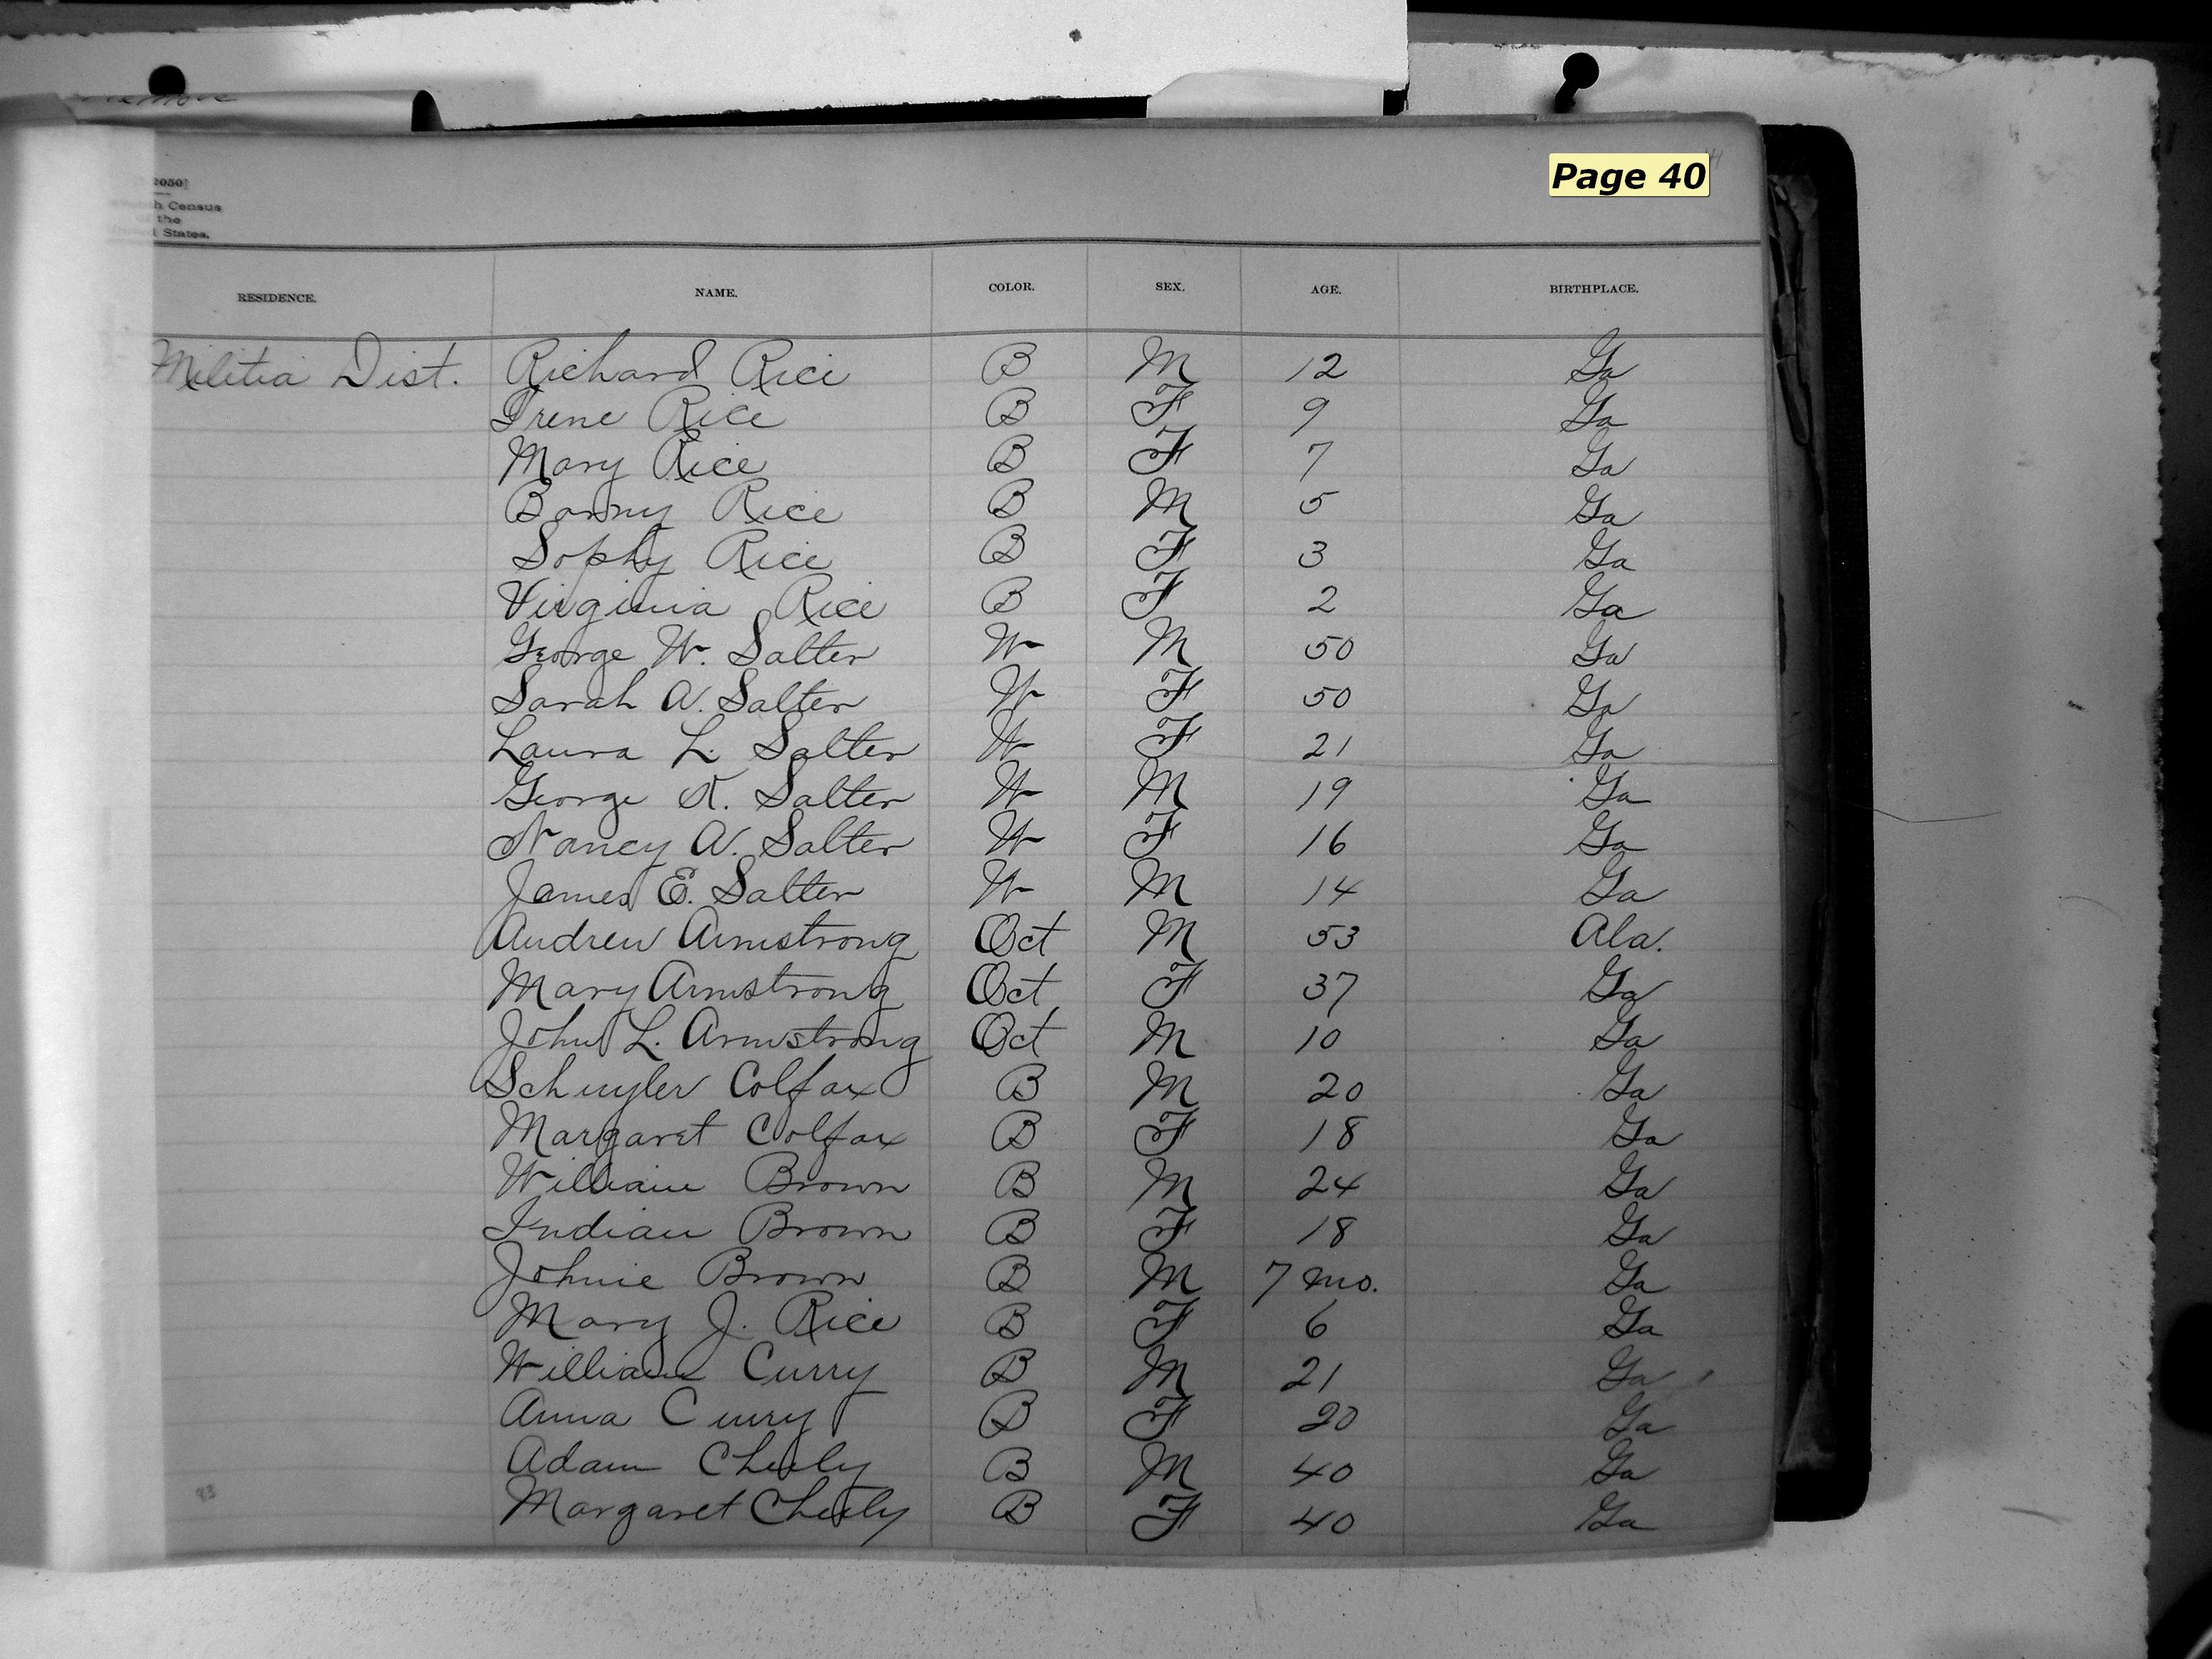 Page 40
2050]
h Census
the
States.
RESIDENCE. NAME. COLOR. SEX. AGE. BIRTHPLACE.
Militia Dist. Richard Rice B M 12 Ga
Irene Rice B F 9 Ga
Mary Rice B F 7 Ga
Banny Rice B M 5 Ga
Sophy Rice B F 3 Ga
Virginia Rice B F 2 Ga
George W. Salter W M 50 Ga
Sarah A. Salter W F 50 Ga
Laura L. Salter W F 21 Ga
George Salter W M 19 Ga
Nancy A. Salter W F 16 Ga
James E. Salter W M 14 Ga
Andrew Armstrong Oct M 53 Ala.
Mary Armstrong Oct F 37 Ga
John L. Armstrong Oct M 10 Ga
Schuyler Colfax B M 20 Ga
Margaret Colfax B F 18 Ga
William Brown B M 24 Ga
Indian Brown B F 18 Ga
Johnie Brown B M 7 mo. Ga
Mary J. Rice B F 6 Ga
William Curry B M 21 Ga
Anna Curry B F 20 Ga
Adam Cheely B M 40 Ga
Margaret Cheely B F 40 Ga